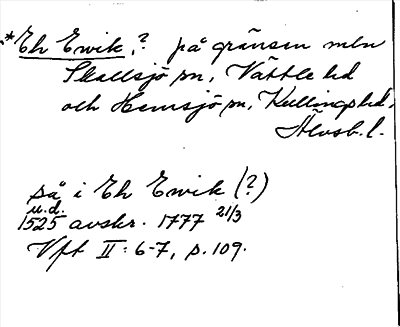 *Eh Ewik,? på gränsen mln
Skallsjö sn, Vättle hd
och Hemsjö sn, Kullings hd,
Älvsb. l.
på i Eh Ewik (?)
u.d.
1525 avskr. 1777 21/3
Vft II: 6-7, p. 109.